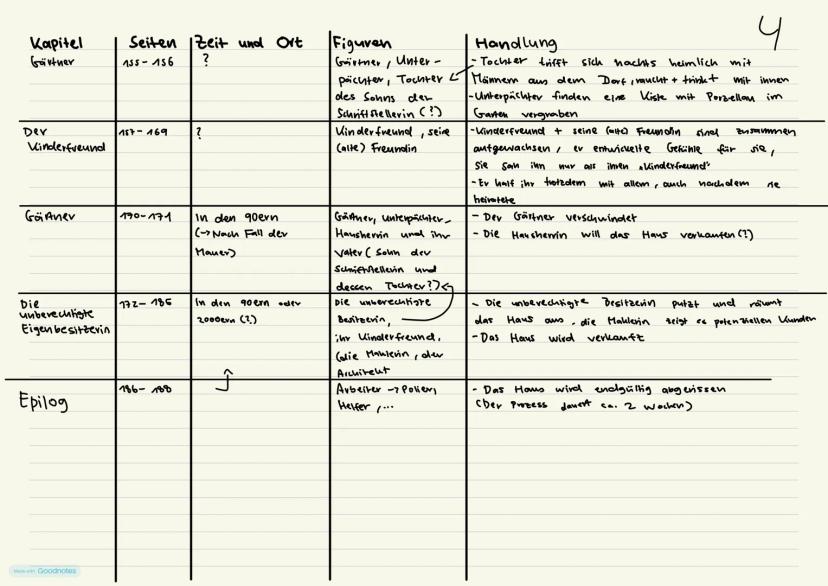 4
Kapitel Seiten Zeit und Ort Figuren Handlung
Gärtner
155 - 156
?
Gärtner, Unter-
pächter, Tochter
des Sohns der
Schriftstellerin (?)
- Tochter trifft sich nachts heimlich mit
Männern aus dem Dorf, raucht + trinkt mit ihnen
- Unterpächter finden eine Kiste mit Porzellan im
Garten vergraben
Der
Kinderfreund
157 - 169
?
Kinderfreund, seine
(alte) Freundin
- Kinderfreund + seine (alte) Freundin sind zusammen
aufgewachsen, er entwickelte Gefühle für sie,
sie sah ihn nur als ihren „Kinderfreund"
- Er half ihr trotzdem mit allem, auch nachdem sie
heiratete
Gärtner
170 - 171
In den 90ern
(→ Nach Fall der
Mauer)
Gärtner, Unterpächter,
Hausherrin und ihr
Vater (Sohn der
Schriftstellerin und
dessen Tochter?)
- Der Gärtner verschwindet
- Die Hausherrin will das Haus verkaufen (?)
Die
unberechtigte
Eigenbesitzerin
172 - 185
In den 90ern oder
2000ern (?)
Die unberechtigte
Besitzerin,
ihr Kinderfreund,
(die Maklerin, der
Architekt
- Die unberechtigte Besitzerin putzt und räumt
das Haus aus, die Maklerin zeigt es potenziellen Kunden
- Das Haus wird verkauft
Epilog
186 - 188
Arbeiter → Polier,
Helfer, ...
- Das Haus wird endgültig abgerissen
(Der Prozess dauert ca. 2 Wochen)
Made with Goodnotes